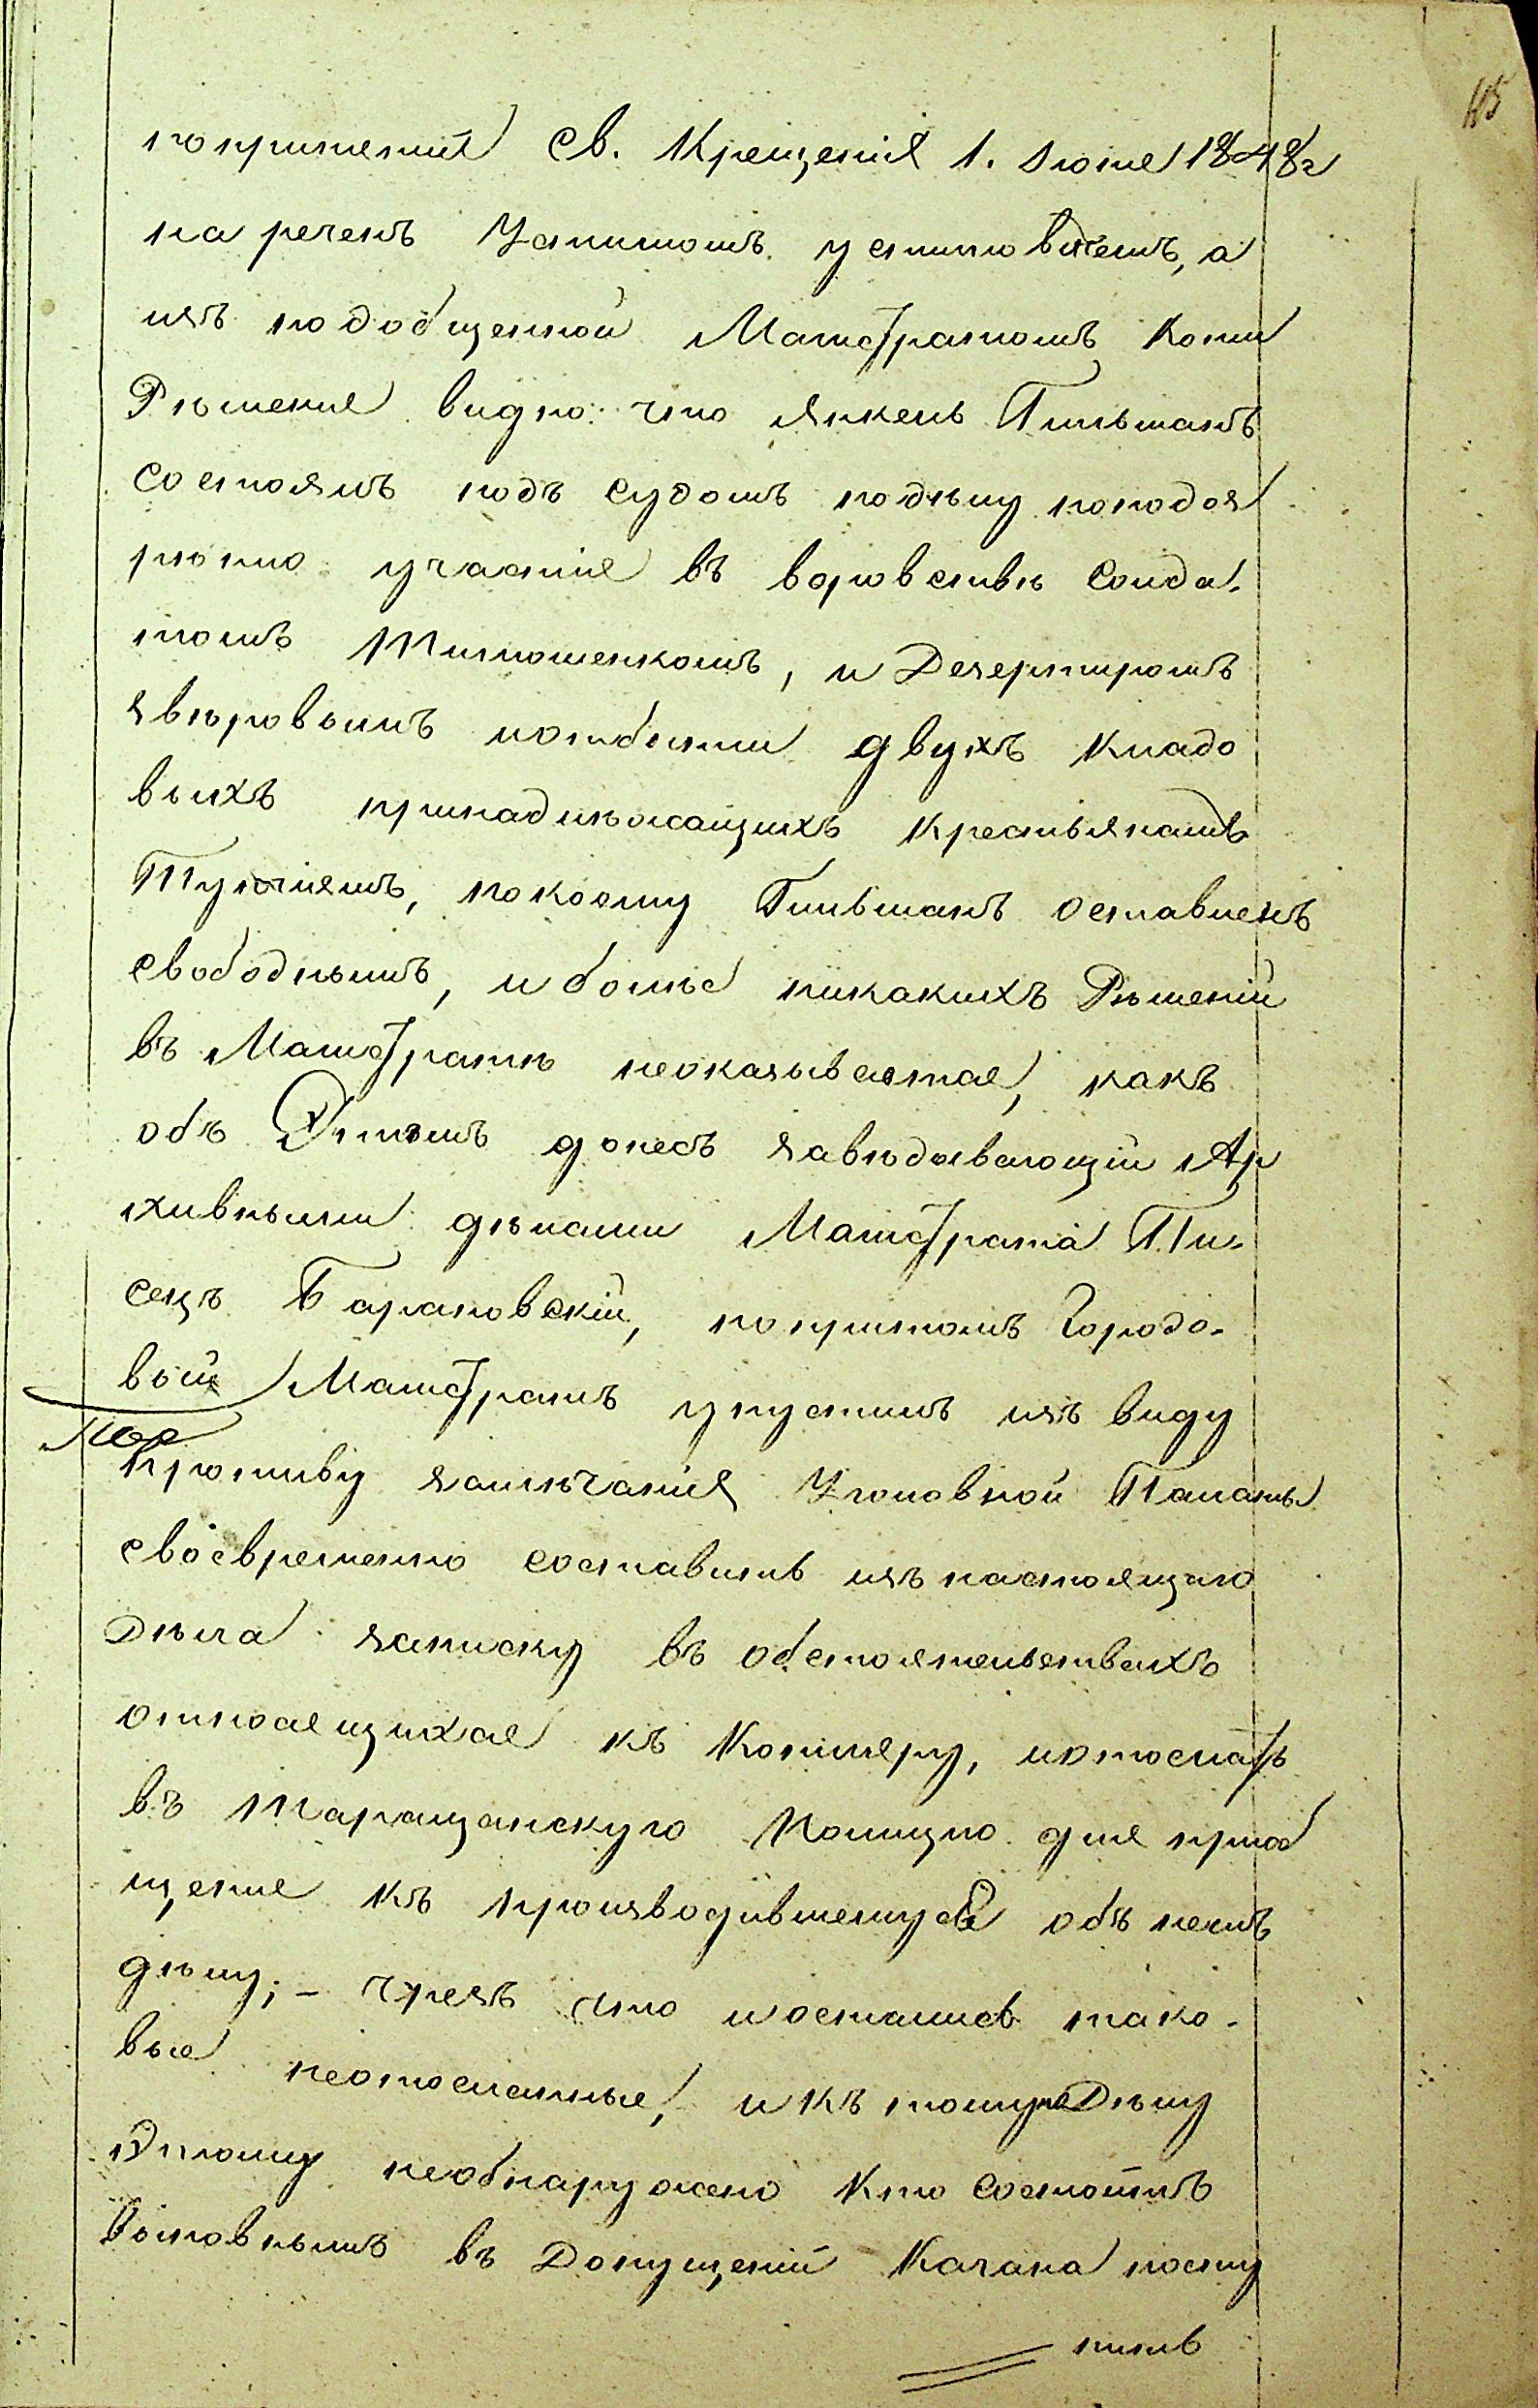 115
попринятій Св. Крещенія 1. Іюня 1848 г
на реченъ Устиномъ Устиновичемъ, а
изъ подобщенной Магистратомъ Копіи
Рѣшенія видно: что Янкель Гильманъ
состоялъ подъ судомъ подѣлу поподоз
рѣнію участія въ воровствѣ Солда-
томъ Тимошенкомъ, и Дезертиромъ
Звѣровымъ изъ двухъ кладо
выхъ принадлежащихъ крестьянамъ
покоему Гильманъ оставленъ
свободнымъ, и болѣе никакихъ Рѣшеній
въ Магистратѣ неоказывается, какъ
объ Этомъ донесъ завѣдывающій Ар
хивными дѣлами Магистрата Пи-
сецъ Барановскій, попритомъ Городо-
вый Магистратъ упустилъ изъ виду
противу замѣчанія Уголовной Палаты
своевременно составить изъ настоящаго
Дѣла записку въ обстоятельствахъ
относящихся къ Копиперу, иотослать
въ Таращанскую Полицію для пріоб
щенія къ производившемуся объ немъ
дѣлу; – чрезъ что иостались тако-
выя неотосланные, и къ томуже Дѣлу
Этому необнаружено кто состоитъ
Виновнымъ въ Допущеній Качана посту
пить